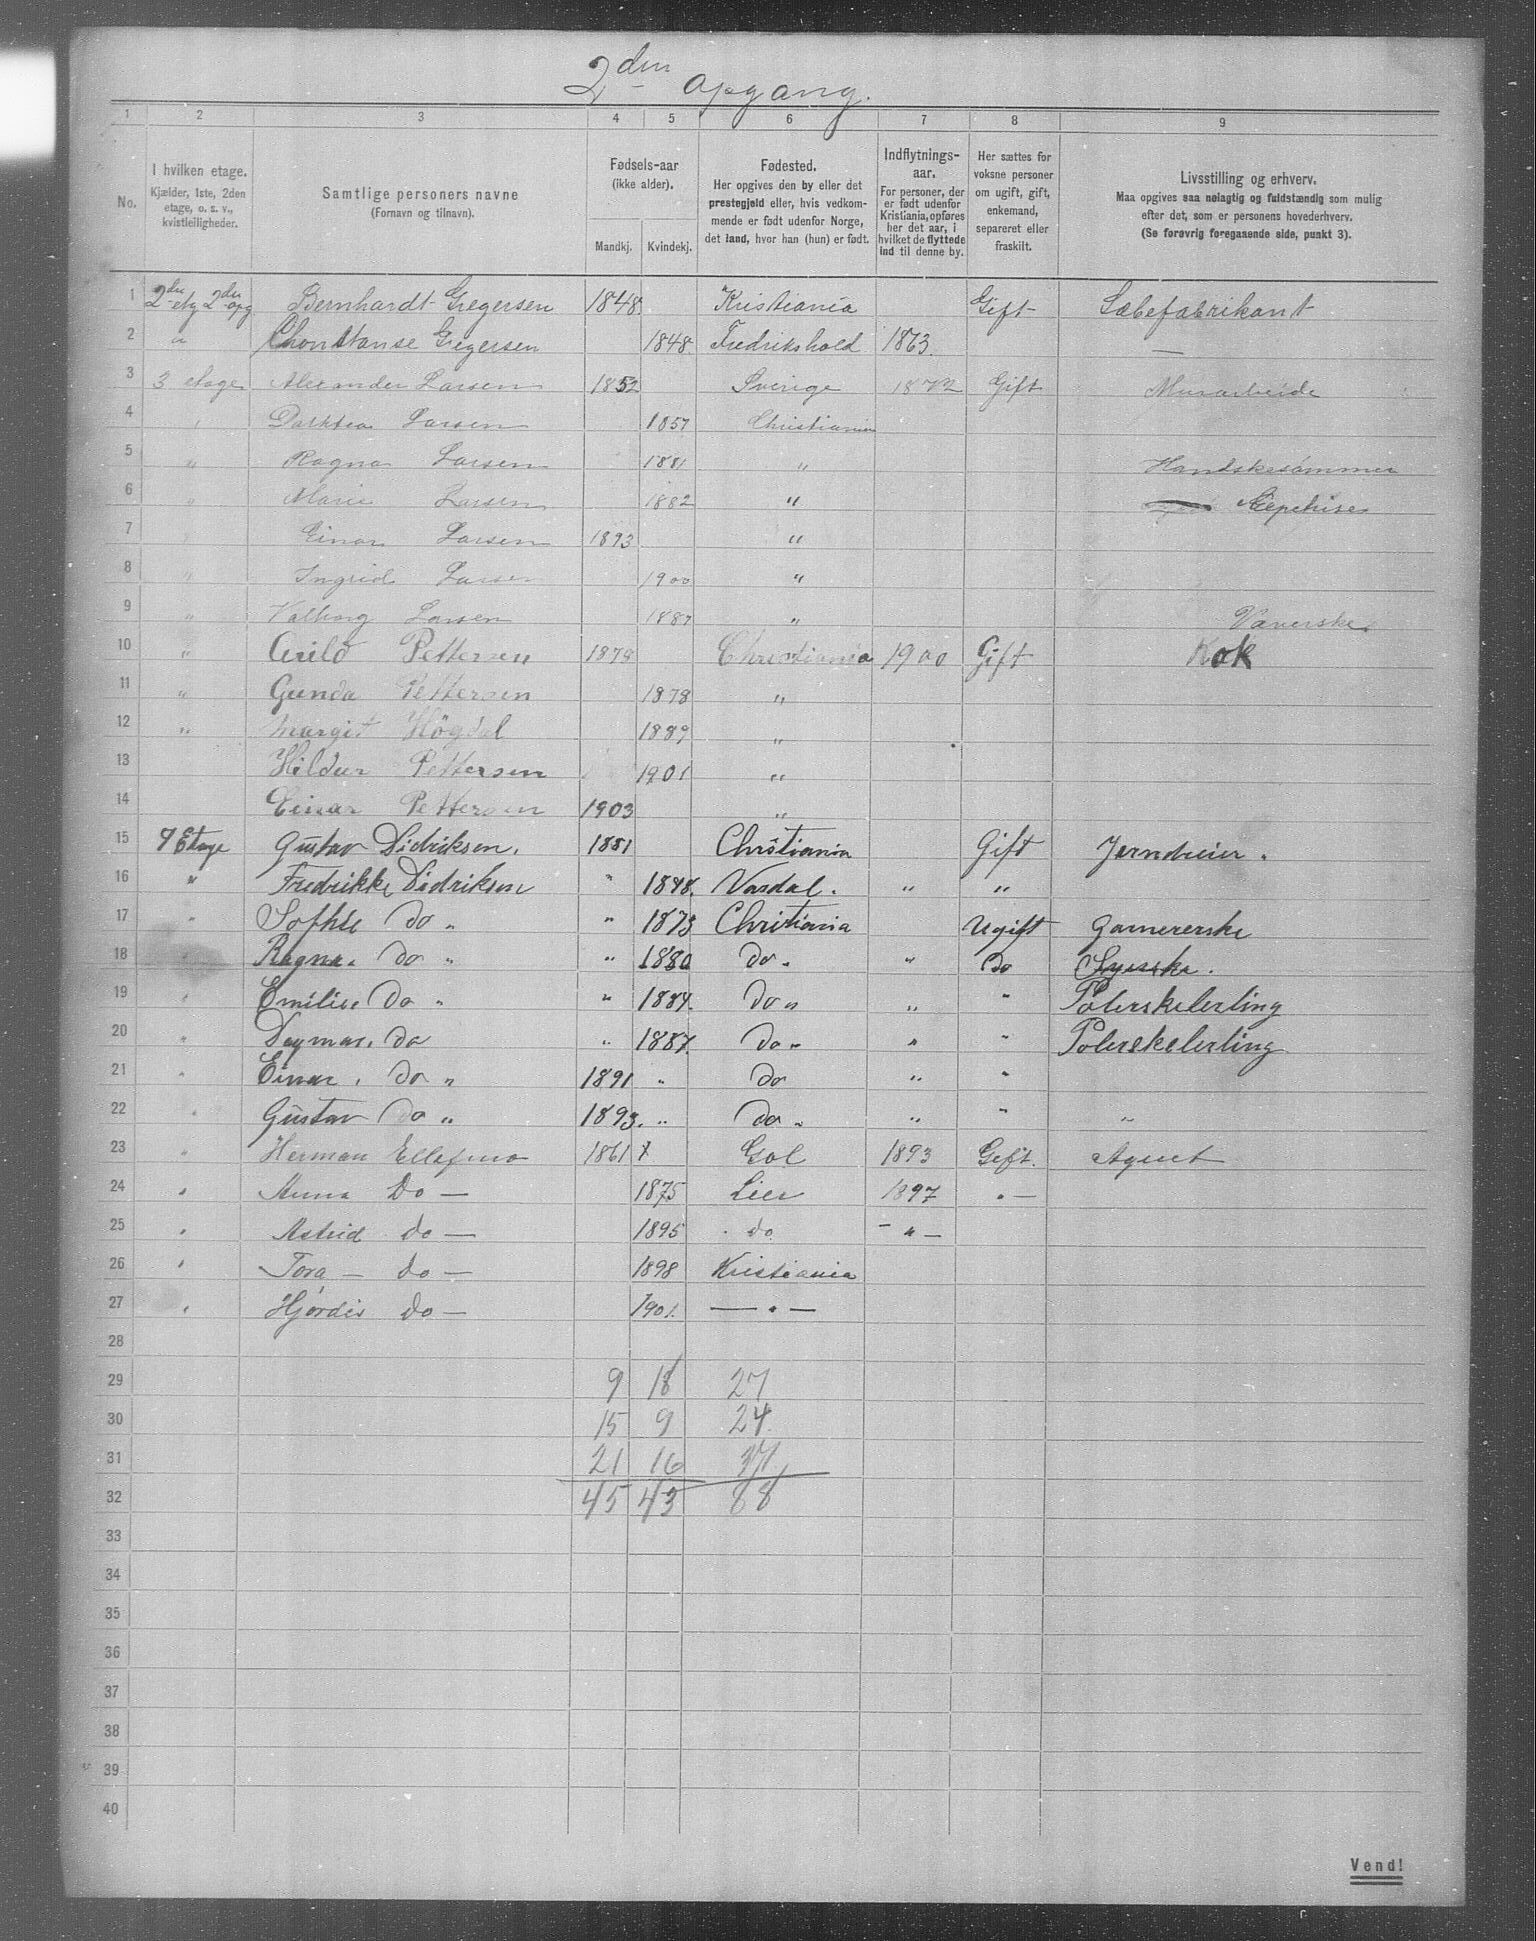 2den opgang.
1 2 3 4 5 6 7 8 9
No.
I hvilken etage.
Kjælder, 1ste, 2den
etage, o. s. v.,
kvistleiligheder.
Samtlige personers navne
(Fornavn og tilnavn).
Fødsels-aar
(ikke alder).
Mandkj. Kvindekj.
Fødested.
Her opgives den by eller det
prestegjeld eller, hvis vedkom-
mende er født udenfor Norge,
det land, hvor han (hun) er født.
Indflytnings-
aar.
For personer, der
er født udenfor
Kristiania, opføres
her det aar, i
hvilket de flyttede
ind til denne by.
Her sættes for
voksne personer
om ugift, gift,
enkemand,
separeret eller
fraskilt.
Livsstilling og erhverv.
Maa opgives saa nøiagtig og fuldstændig som mulig
efter det, som er personens hovederhverv.
(Se forøvrig foregaaende side, punkt 3).
1 2den etg 2den opg Bernhardt Gregersen 1848 Kristiania Gift Sæbefabrikant
2 " Chonstanse Gregersen 1848 Fredrikshold 1863 —
3 3 etage Alexander Larsen 1852 Sverige 1872 Gift Murarbeide
4 " Larsen 1857 Christiania
5 " Ragna Larsen 1881 " Handskesømmer
6 " Marie Larsen 1882 "
7 " Einar Larsen 1893 "
8 " Ingrid Larsen 1900 "
9 " Valborg Larsen 1887 " Væverske
10 " Arild Pettersen 1878 Christiania 1900 Gift Kok
11 " Gunda Pettersen 1878 "
12 " Margit Högdal 1889 "
13 Hildur Pettersen 1901 "
14 Einar Pettersen 1903 "
15 4 Etage Gustav Didriksen. 1881 Christiania Gift Jerndreier.
16 " Fredrikke Didriksen " 1848. Vardal. " "
17 " Sofhie Do " " 1873 Christiania Ugift
18 " Ragna. Do " " 1880 Do. " Do Syerske.
19 " Emilie Do " " 1884. Do " " " Polerskelerling
20 " Dagmar. Do " 1887. Do " " " Polerskelerling
21 " Einar. Do " 1891 " Do " "
22 " Gustav Do " 1893. " Do " " " "
23 " Herman 1861 x Gol 1893 Gift. Agent
24 " Anna Do — 1875 Lier 1897 " —
25 " Astrid do — 1895 " do — " —
26 " Tora — do — 1898 Kristiania
27 " Hjørdis do — 1901. — " —
28
29 9 18 27
30 15 9 24
31 21 16 37
32 45 43 88
33
34
35
36
37
38
39
40
Vend!